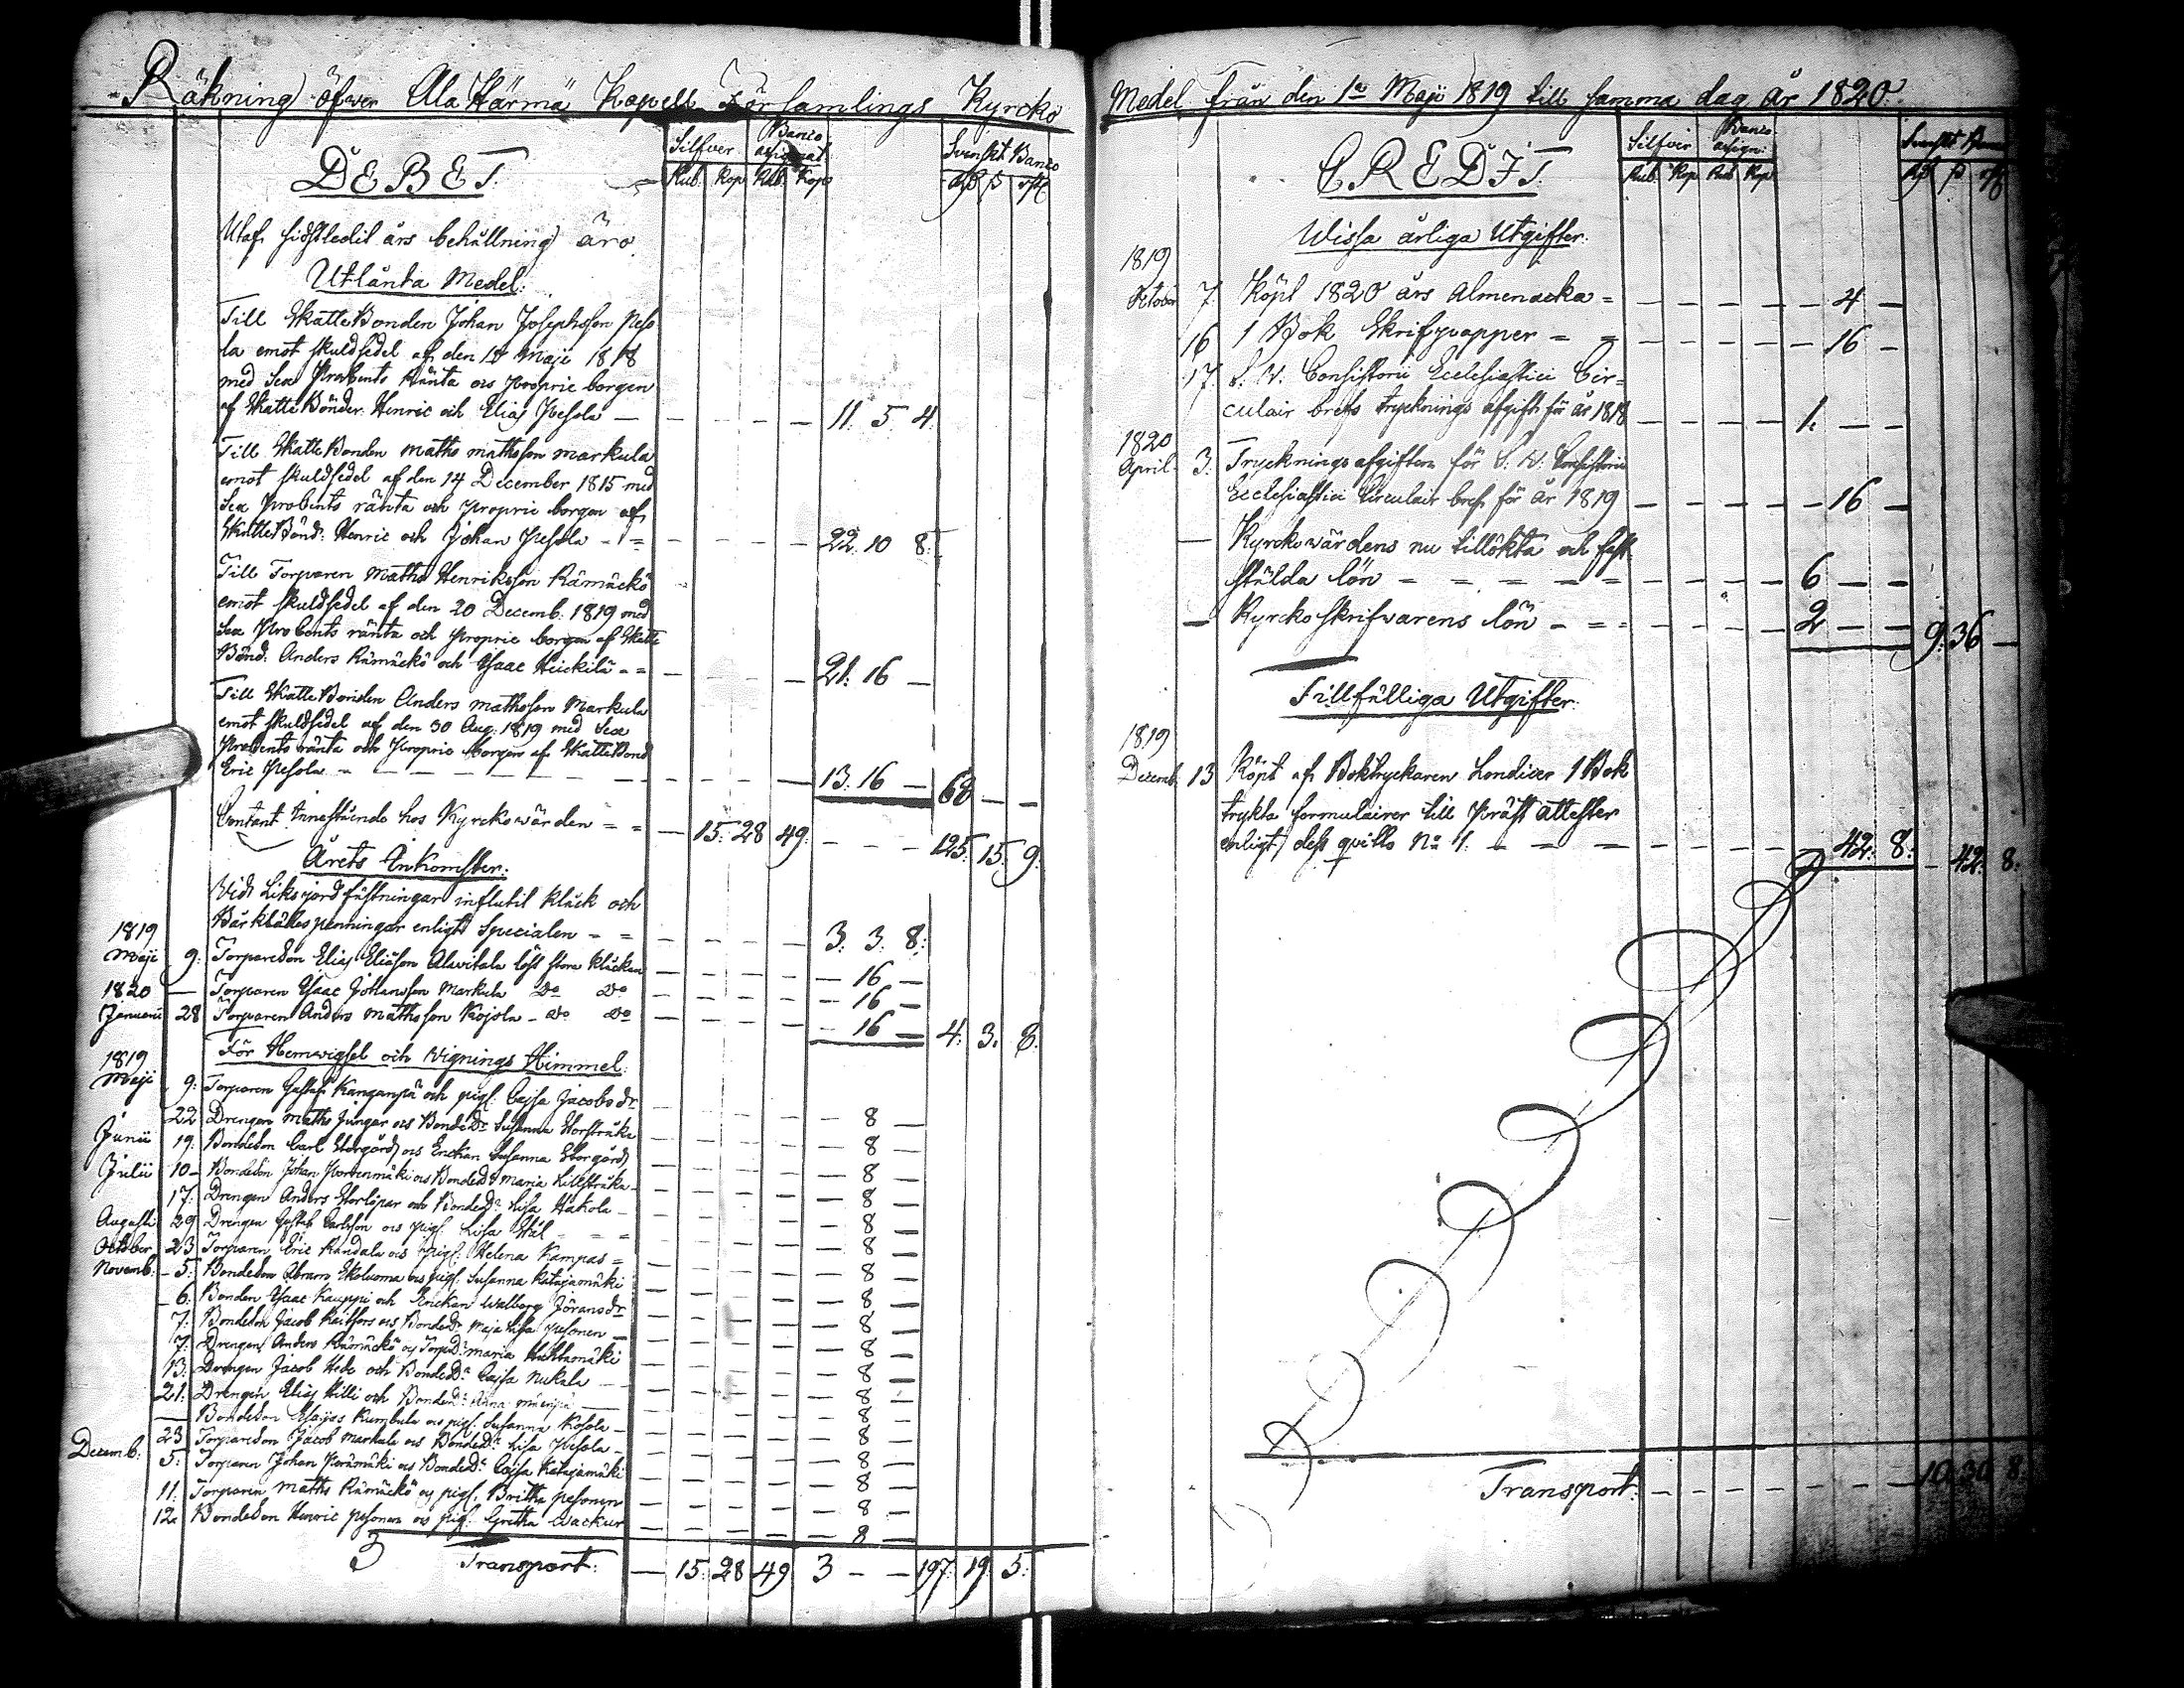 Räkning öfwer Ala Härmä Kapell Församlings Kyrcko
DEBET.
Silfver Banco assignat: Svenskt Banco
Rub. Kop Rub. Kop
Utaf sidstledit års behållning äro
Utlånta Medel:
Till Skatte Bonden Johan Josephsson Peso
la emot skuldsedel af den 14 Maji 1818
med Sex Procents Ränta och proprie borgen
af Skatte Bönder: Henric och Elias Pesola — — — — — 11. 5. 4.
Till Skatte Bonden Matts Mattsson Markula
emot skuldsedel af den 14 December 1815 med
Sex Procents ränta och proprie borgen af
Skatte Bönd: Henric och Johan Pesola - = — — — — 22. 10 8:
Till Torparen Matts Henriksson Rämäckö
emot skuldsedel af den 20 Decemb. 1819 med
Sex Procents ränta och proprie borgen af Skatte
Bönd: Anders Rämäckö och Isaac Heickilä - = — — — — 21: 16 —
Till Skatte Bonden Anders Mattsson Markula
emot skuldsedel af den 30 Aug. 1819 med Sex
Procents ränta och proprie borgen af Skatte Bond
Eric Pesola — — — — — 13. 16 — 68 — —
Contant Innestående hos Kyrckowärden = = — 15. 28 49. — — — 125. 15. 9.
Årets Inkomster:
Vid Liks jordfästningar influtit Kläck och
Bårklädes penningar enligt Specialen - = — — — — 3. 3. 8:
1819 Maji 9: Torpareson Elias Eliasson Alavitala löst stora kläckan — — — — — 16 —
1820 — Torparen Isaac Johansson Markula Do Do — — — — — 16 —
Januarii 28 Torparen Anders Mattsson Kojola - Do Do — — — — — 16 — 4. 3. 8.
För Hemwigsel och Wignings Himmel:
1819 Maji 9: Torparen Gustaf Kanganpä och pig. Cajsa Jacobsdr — — — — — 8 —
22 Drengen Matts Jungar och Bonded: Susanna — — — — — 8 —
Junii 19: Bondeson Carl Storgård och Enckan Susanna Storgård — — — — — 8 —
Julii 10 - Bondeson Johan och Bonded: Maria — — — — — 8 —
17: Drengen Anders och Bonded: Lisa Hakola — — — — — 8 —
Augusti 29 Drengen Gustaf Carlsson och pig. Lisa — — — — — 8 —
October 23 Torparen Eric Randala och pig. Helena Kampas = — — — — — 8 —
Novemb: - 5: Bondeson Abram Ekoluoma och pig. Susanna Katajamäki — — — — — 8 —
- 6: Bonden Isaac Kauppi och Enckan Walborg Jöransdr — — — — — 8 —
7. Bondeson Jacob och Bonded: Maja Lisa Pesonen — — — — — 8 —
7: Drengen Anders Rämäckö och Torpd: Maria Huhtamäki — — — — — 8 —
13: Drengen Jacob Hede och Bonded: Cajsa Nukala — — — — — 8 —
21: Drengen Elias Killi och Bonded: Anna Mäenpä — — — — — 8 —
— Bondeson Kumbula och pig. Susanna Kosola - — — — — — 8 —
23 Torpareson Jacob Markula och Bonded: Lisa Pesola - — — — — — 8 —
Decemb: 5: Torparen Johan Perämäki och Bonded: Cajsa Katajamäki — — — — — 8 —
11: Torparen Matts Rämäckö och pig. Britha Pesonen — — — — — 8 —
12. Bondeson Henric Pesonen och pig: Gretha Wackur — — — — — 8
3 Transport: — 15. 28 49 3 — — 197. 19. 5:
Medel från den 1a Maji 1819 till samma dag år 1820.
CREDIT.
Silfver Banco assign: Svenskt Banco
Rub. Kop Rub Kop
Wissa årliga Utgifter:
1819
October 7. Köpt 1820 års Almenacka = — — — — — 4 —
16 1 Bok Skrifpapper = = — — — — — 16 —
17. S: V: Consistorii Ecclesiastici Cir=
culair brefs trycknings afgift för år 1818 — — — — 1. — —
1820
April 3: Trycknings afgiften för S: V: Consistorii
Ecclesiastici Circulair bref för år 1819 — — — — — 16 —
— Kyrckowärdens nu tillökta och fast
stälda lön = — = — = — — — — 6 — —
— Kyrckoskrifwarens lön - = = — — — — 2 — — 9. 36 —
Tillfälliga Utgifter:
1819
Decemb. 13 Köpt af Boktryckaren Londicer 1 Bok
tryckta formulairer till Präst attester
enligt dess qvitto No 1: — — — — — — — 42: 8: — 42. 8:
Transport: — — — — — 10. 30 8.